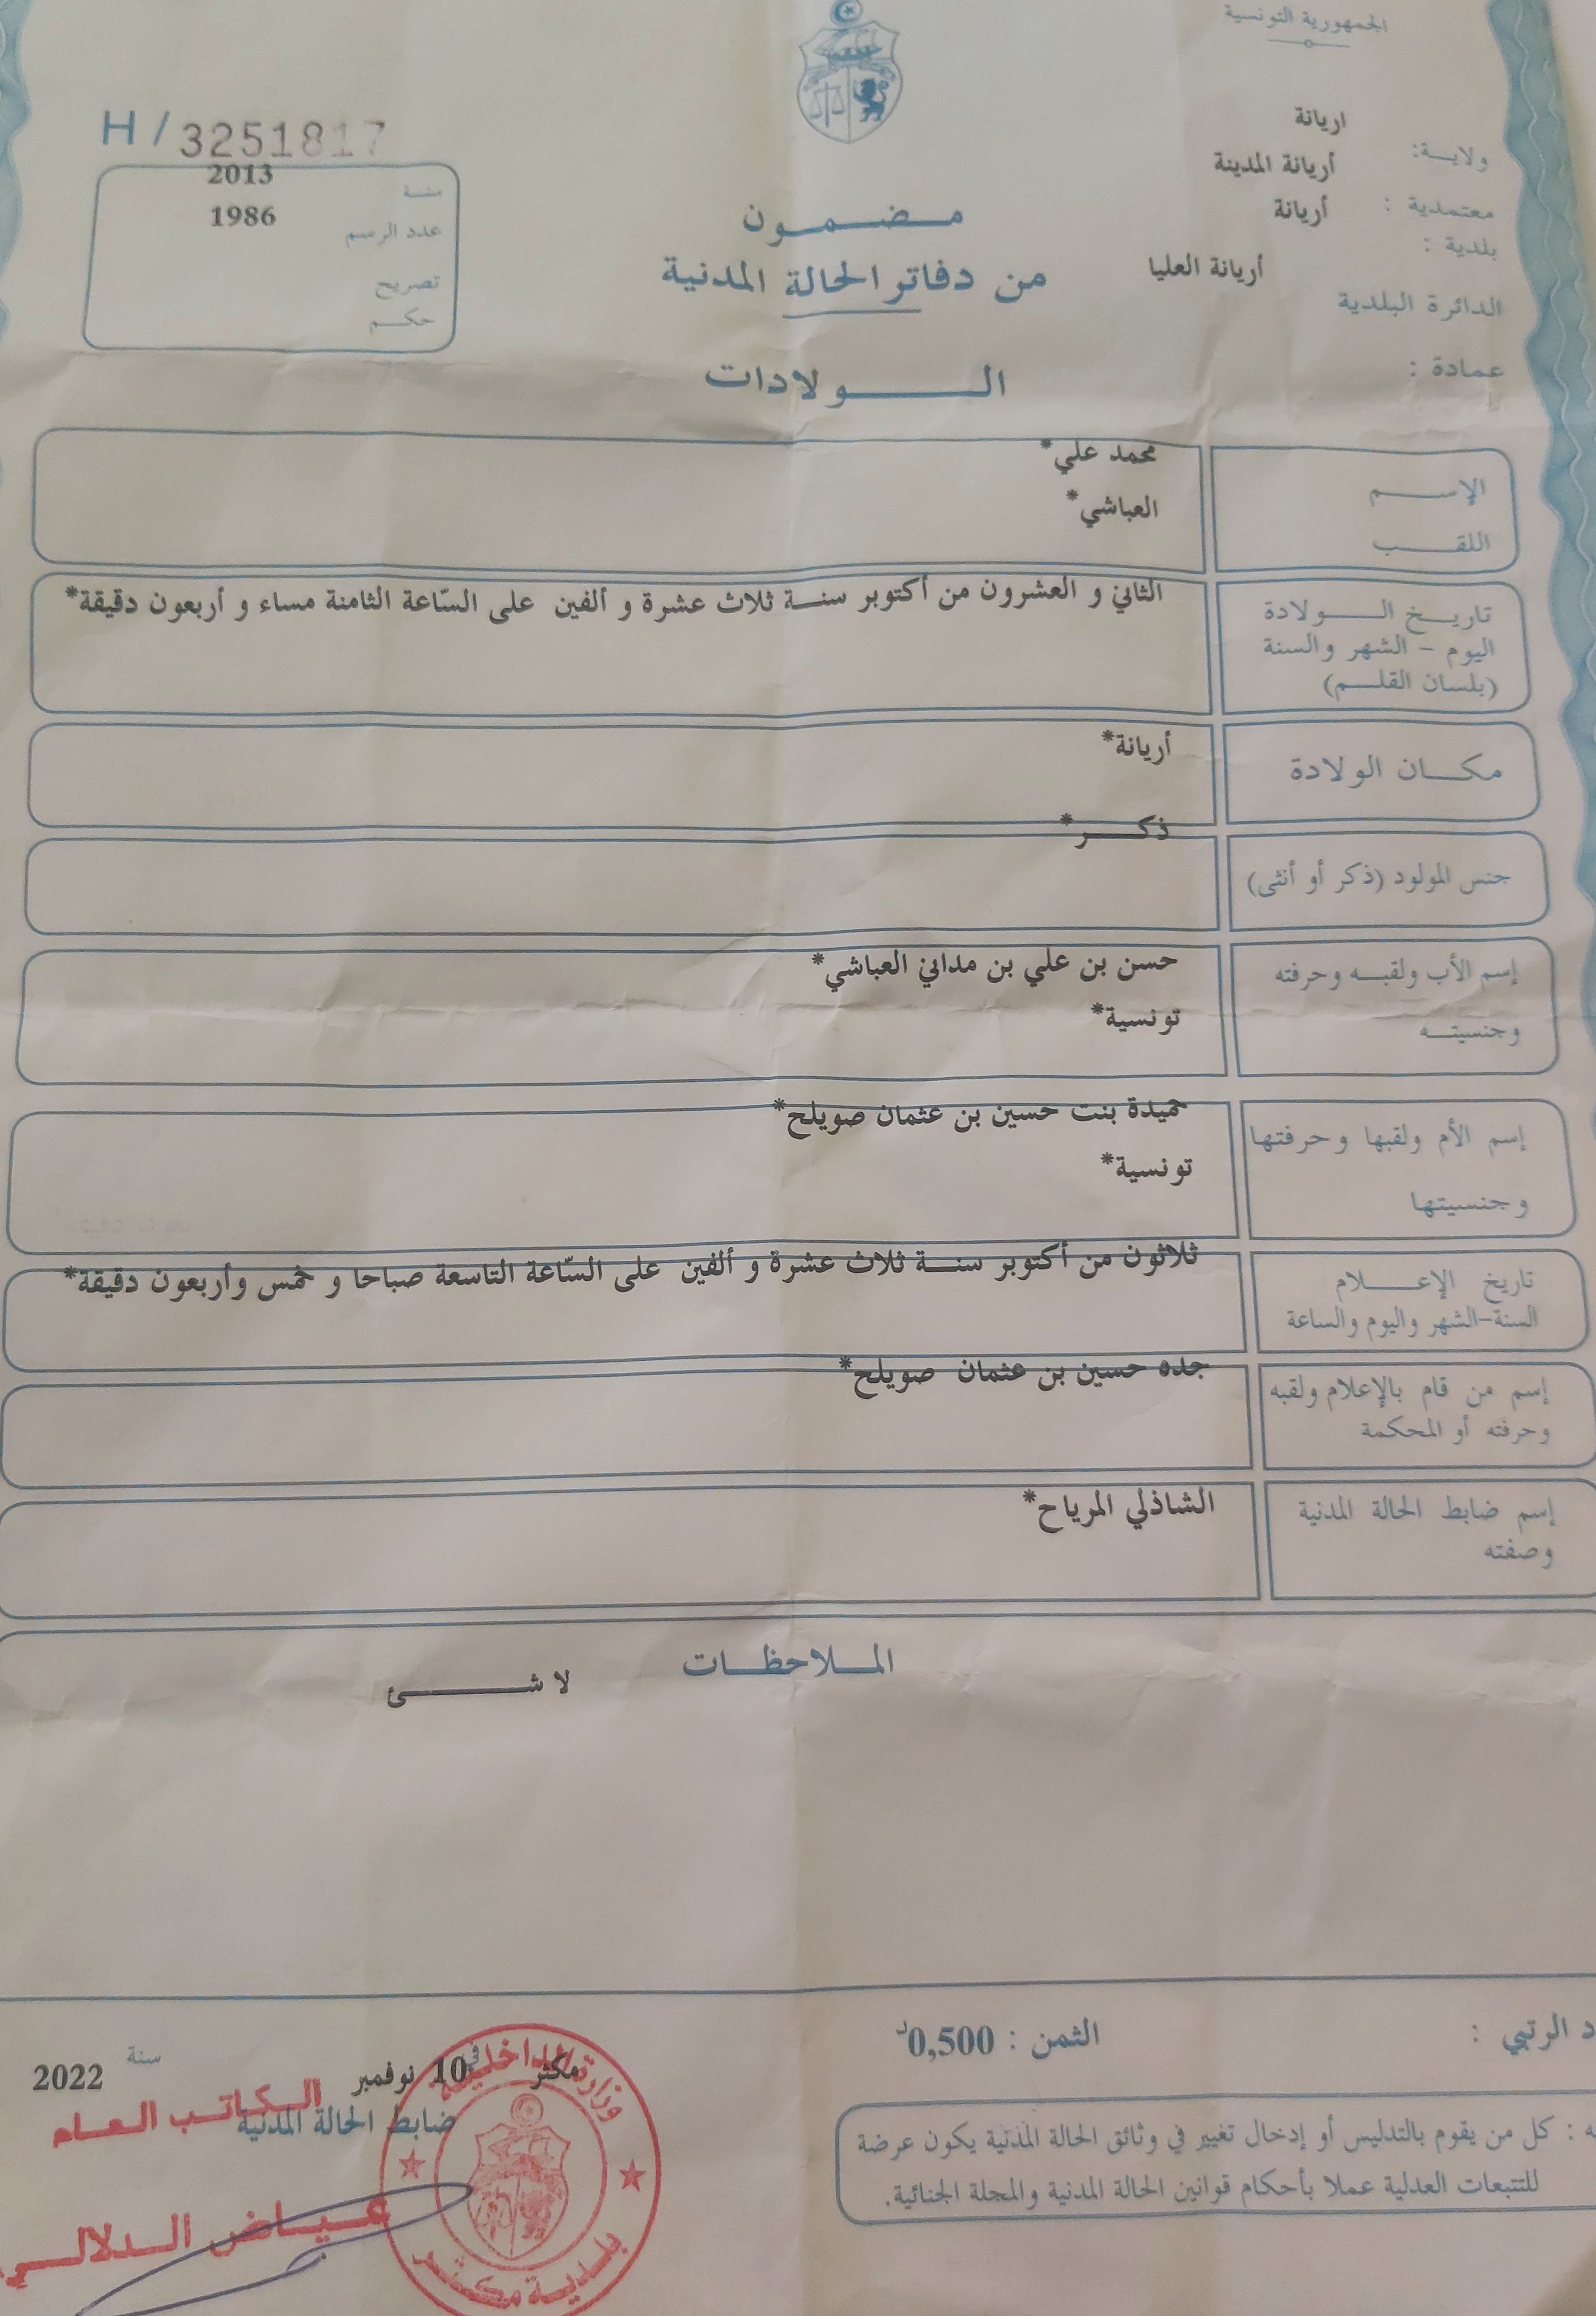 الجمهورية التونسية
H / 3251817
ولايـة: اريانة
معتمدية : أريانة المدينة
بلدية : أريانة
الدائرة البلدية أريانة العليا
عمادة :
سنـة 2013
عدد الرسم 1986
تصريح
حكـم
مـضـمـون
من دفاتر الحالة المدنية
الـولادات
الإسـم محمد علي*
اللقـب العباشي*
تاريـخ الـولادة
اليوم - الشهر والسنة
(بلسان القلـم)
الثاني و العشرون من أكتوبر سنـة ثلاث عشرة و ألفين على السّاعة الثامنة مساء و أربعون دقيقة*
مكـان الولادة أريانة*
جنس المولود (ذكر أو أنثى) ذكـر*
إسم الأب ولقبـه وحرفته حسن بن علي بن مداني العباشي*
وجنسيتـه تونسية*
إسم الأم ولقبها وحرفتها حميدة بنت حسين بن عثمان صويلح*
وجنسيتها تونسية*
تاريخ الإعـلام
السنة-الشهر واليوم والساعة
ثلاثون من أكتوبر سنـة ثلاث عشرة و ألفين على السّاعة التاسعة صباحا و خمس وأربعون دقيقة*
إسم من قام بالإعلام ولقبه
وحرفته أو المحكمة
جده حسين بن عثمان صويلح*
إسم ضابط الحالة المدنية
وصفته
الشاذلي المرياح*
المـلاحظـات
لا شـئ
د الرتبي :
الثمن : 0,500د
مكثر في 10 نوفمبر سنة 2022
ضابط الحالة المدنية
الـكـاتـب الـعـام
عـيـاض الـدلالـي
وزارة الداخلية
بلـديـة مكـثـر
ـه : كل من يقوم بالتدليس أو إدخال تغيير في وثائق الحالة المدنية يكون عرضة
للتتبعات العدلية عملا بأحكام قوانين الحالة المدنية والمجلة الجنائية.